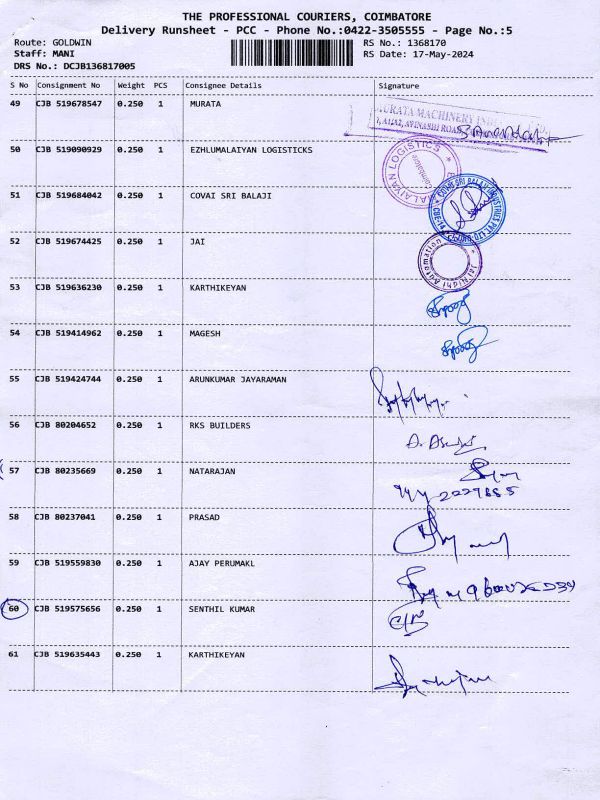 THE PROFESSIONAL COURIERS, COIMBATORE
Delivery Runsheet - PCC - Phone No.:0422-3505555 - Page No.:5
Route: GOLDWIN RS No.: 1368170
Staff: MANI RS Date: 17-May-2024
DRS No.: DCJB136817005
S No Consignment No Weight PCS Consignee Details Signature
49 CJB 519678547 0.250 1 MURATA
URATA MACHINERY
AVINASHI ROAD
50 CJB 519090929 0.250 1 EZHLUMALAIYAN LOGISTICKS
MALAIYAN LOGISTICS
Coimbatore
51 CJB 519684042 0.250 1 COVAI SRI BALAJI
COVAI SRI BALAJI INDUSTRIES PVT. LTD
52 CJB 519674425 0.250 1 JAI
Jai Nidhi Automation
53 CJB 519636230 0.250 1 KARTHIKEYAN
54 CJB 519414962 0.250 1 MAGESH
55 CJB 519424744 0.250 1 ARUNKUMAR JAYARAMAN
56 CJB 80204652 0.250 1 RKS BUILDERS
57 CJB 80235669 0.250 1 NATARAJAN
58 CJB 80237041 0.250 1 PRASAD
59 CJB 519559830 0.250 1 AJAY PERUMAKL
60 CJB 519575656 0.250 1 SENTHIL KUMAR
61 CJB 519635443 0.250 1 KARTHIKEYAN